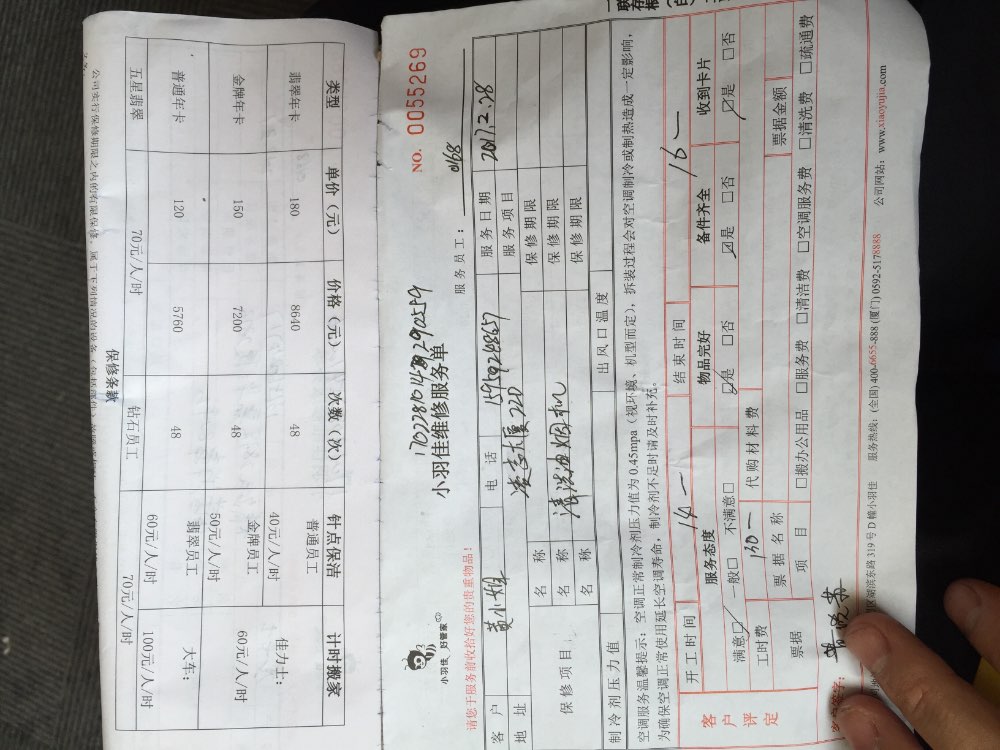 类型 单价（元） 价格（元） 次数（次） 钟点保洁 计时搬家
翡翠年卡 180 8640 48 普通员工 40元/人/时 佳力士： 60元/人/时
金牌年卡 150 7200 48 金牌员工 50元/人/时
普通年卡 120 5760 48 翡翠员工 60元/人/时 大车： 100元/人/时
五星翡翠 70元/人/时 钻石员工 70元/人/时
保修条款
小羽佳 好管家
小羽佳维修服务单
NO. 0055269
请您于服务前收拾好您的贵重物品！
服务员工： 0168
客户 黄小姐 电话 服务日期 2017.2.28
地址 220 服务项目
保修项目 名称 清洗油烟机 保修期限
名称 保修期限
名称 保修期限
制冷剂压力值 出风口温度
空调服务温馨提示：空调正常制冷剂压力值为0.45mpa（视环境、机型而定），拆装过程会对空调制冷或制热造成一定影响，
为确保空调正常使用延长空调寿命，制冷剂不足时请及时补充。
开工时间 14 — 结束时间 16 —
客户评定
服务态度 物品完好 备件齐全 收到卡片
满意□ 一般□ 不满意□ □是 □否 □是 □否 □是 □否
工时费 130 — 代购材料费
票据 票据名称 票据金额
项目 □搬办公用品 □服务费 □清洁费 □空调服务费 □清洗费 □疏通费
区湖滨东路319号D幢小羽佳 服务热线：(全国) 400-6655-888 (厦门) 0592-5178888 公司网站：www.xiaoyujia.com